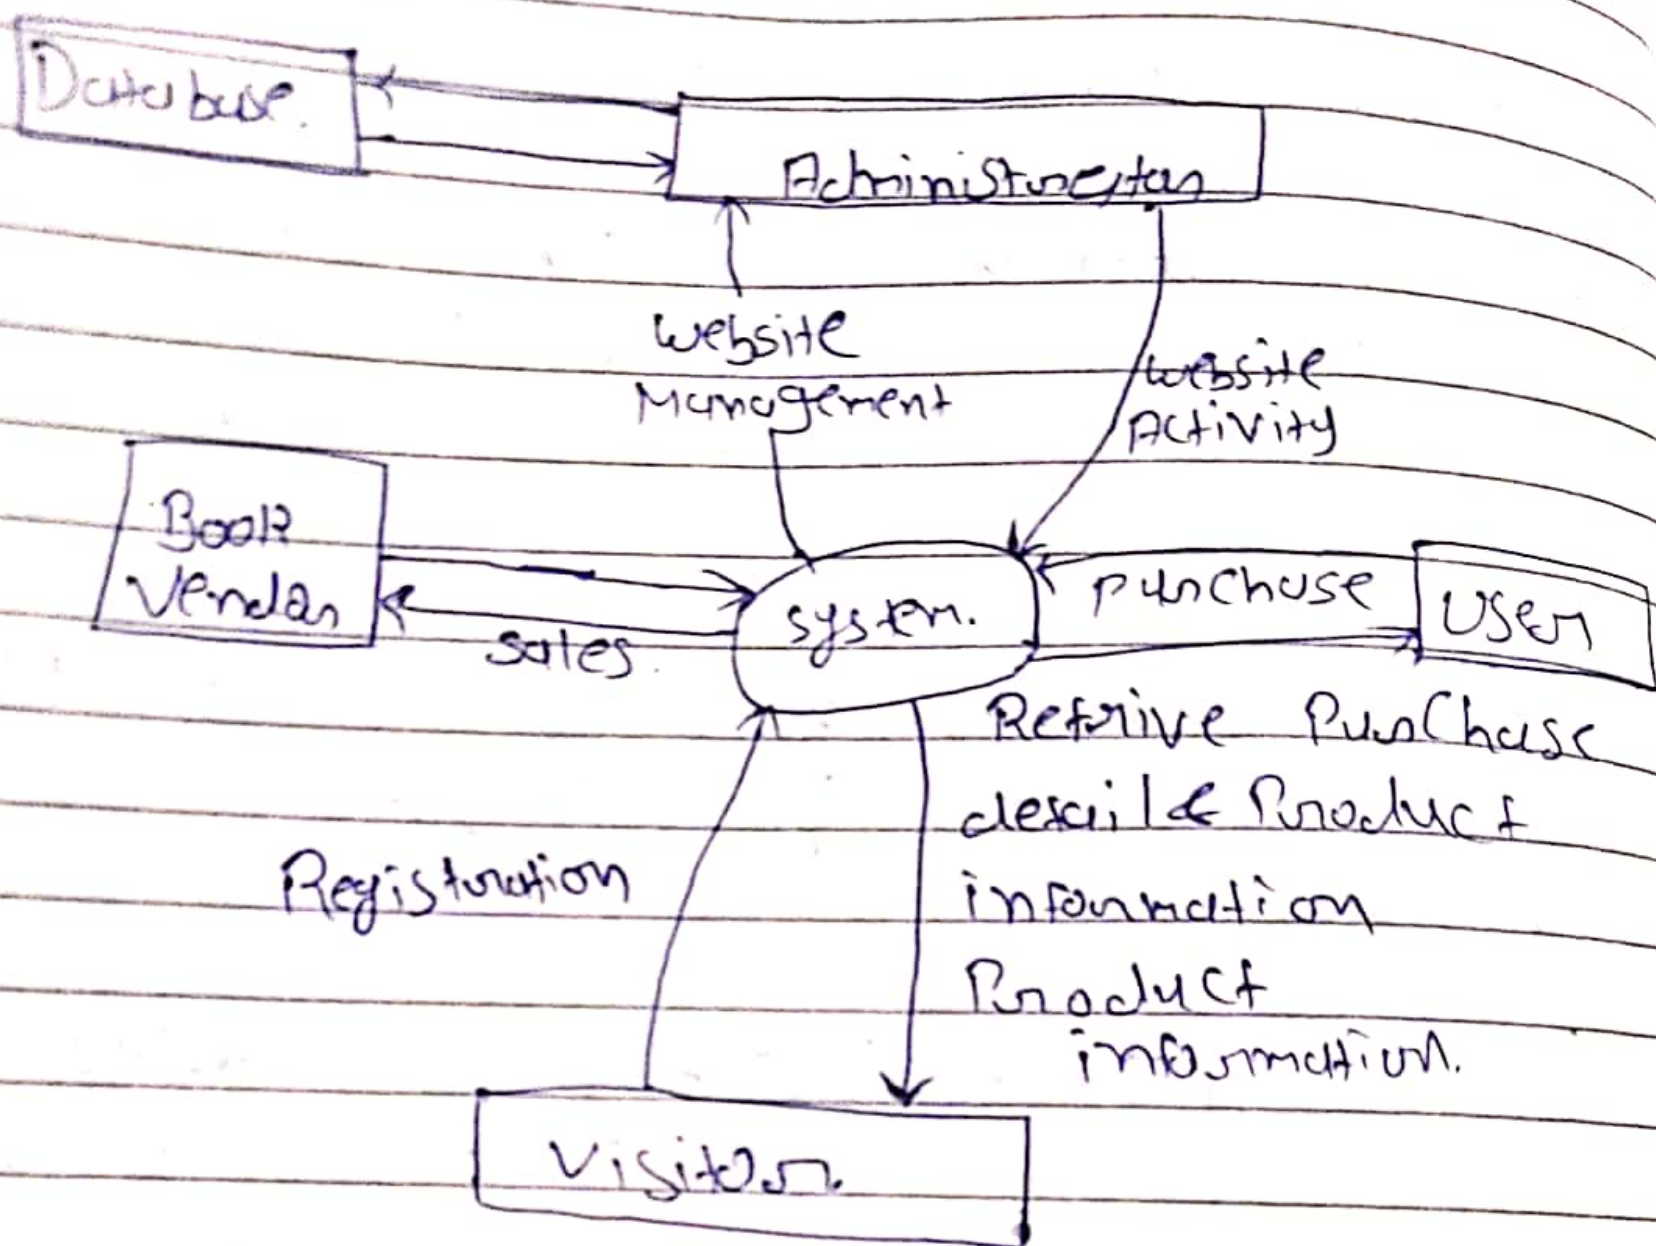 Database.
Administrator
website
Management
website
Activity
Book
Vendor
sales
system.
purchase
User
Retrive Purchase
detail & Product
information
Product
information.
Registration
Visitor.